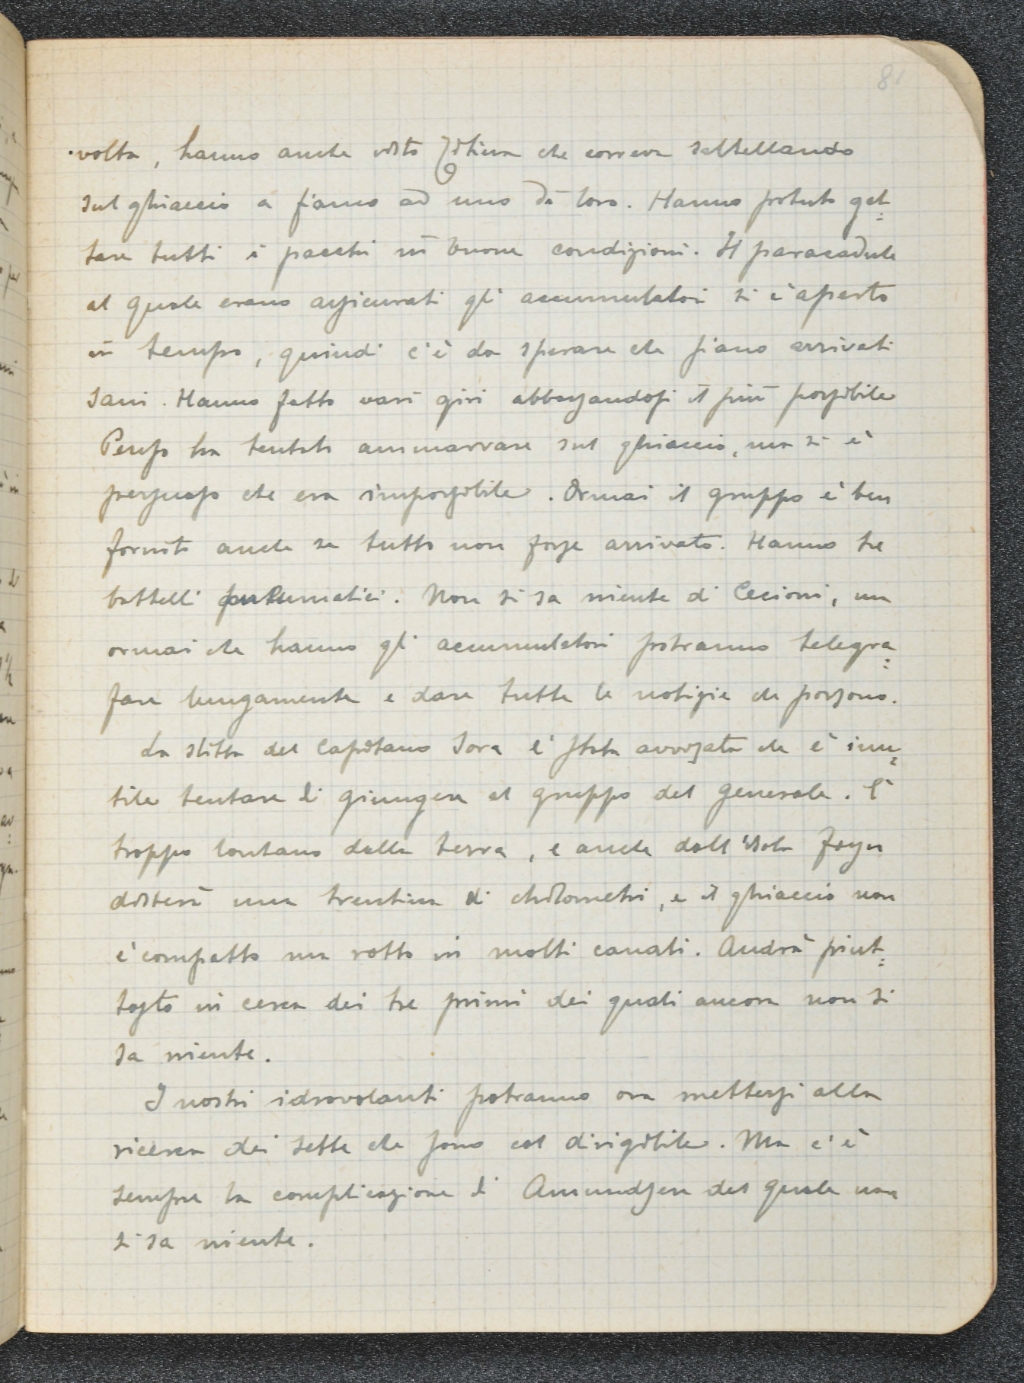 81
volta, hanno anche visto Titina che correva saltellando
sul ghiaccio a fianco ad uno di loro. Hanno potuto get:
tare tutti i pacchi in buone condizioni. Il paracadute
al quale erano assicurati gli accumulatori si è aperto
in tempo, quindi c'è da sperare che siano arrivati
sani. Hanno fatto vari giri abbassandosi il più possibile
Penzo ha tentato ammarrare sul ghiaccio, ma si è
persuaso che era impossibile. Ormai il gruppo è ben
fornito anche se tutto non fosse arrivato. Hanno tre
battelli pneumatici. Non si sa niente di Cecioni, ma
ormai che hanno gli accumulatori potranno telegra:
fare lungamente e dare tutte le notizie che possono.
La slitta del Capitano Sora è stata avvisata che è inu:
tile tentare di giungere al gruppo del Generale. È
troppo lontano dalla terra, e anche dall'isola Foyn
disterà una trentina di chilometri, e il ghiaccio non
è compatto ma rotto in molti canali. Andrà piut:
tosto in cerca dei tre primi dei quali ancora non si
sa niente.
I nostri idrovolanti potranno ora mettersi alla
ricerca dei sette che sono col dirigibile. Ma c'è
sempre la complicazione di Amundsen del quale non
si sa niente.